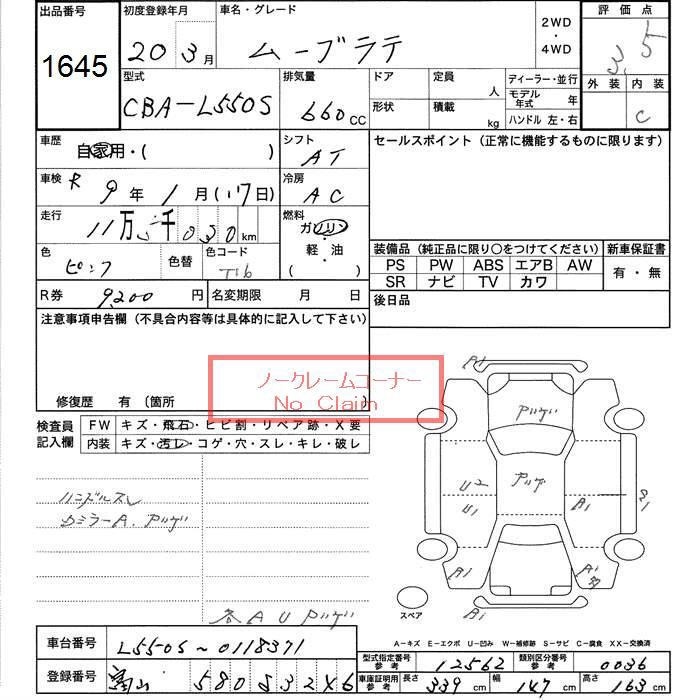 出品番号
1645
初度登録年月
20 3月
車名・グレード
ムーブラテ
2WD
・
4WD
評価点
3.5
外装 内装
C
型式
CBA-L550S
排気量
660 CC
ドア
定員
人
ディーラー・並行
モデル年式 年
形状
積載
kg
ハンドル 左・右
車歴
自家用・( )
シフト
AT
セールスポイント (正常に機能するものに限ります)
車検 R 9年 1月(17日)
冷房
AC
走行
11万5千030km
燃料
ガソリン
・
軽・油
( )
色
ピンク
色替
色コード
T16
装備品 (純正品に限り○をつけてください)
新車保証書
PS PW ABS エアB AW
SR ナビ TV カワ
有・無
R券 9,200円
名変期限 月 日
後日品
注意事項申告欄 (不具合内容等は具体的に記入して下さい)
ノークレームコーナー
No Claim
修復歴 有 〔箇所
検査員記入欄
FW キズ・飛石・ヒビ割・リペア跡・X要
内装 キズ・汚レ・コゲ・穴・スレ・キレ・破レ
ハンドルスレ
ミラーA.アリゲ
各AU アリゲ
A1
アリゲ
アリゲ
U2
U1
A1
A1
A1
A1
スペア
A-キズ E-エクボ U-凹み W-補修跡 S-サビ C-腐食 XX-交換済
車台番号
L550S~0118371
登録番号
富山 580 S 32X6
型式指定番号 参考
12562
類別区分番号 参考
0036
車庫証明用 参考
長さ 339cm
幅 147cm
高さ 163cm